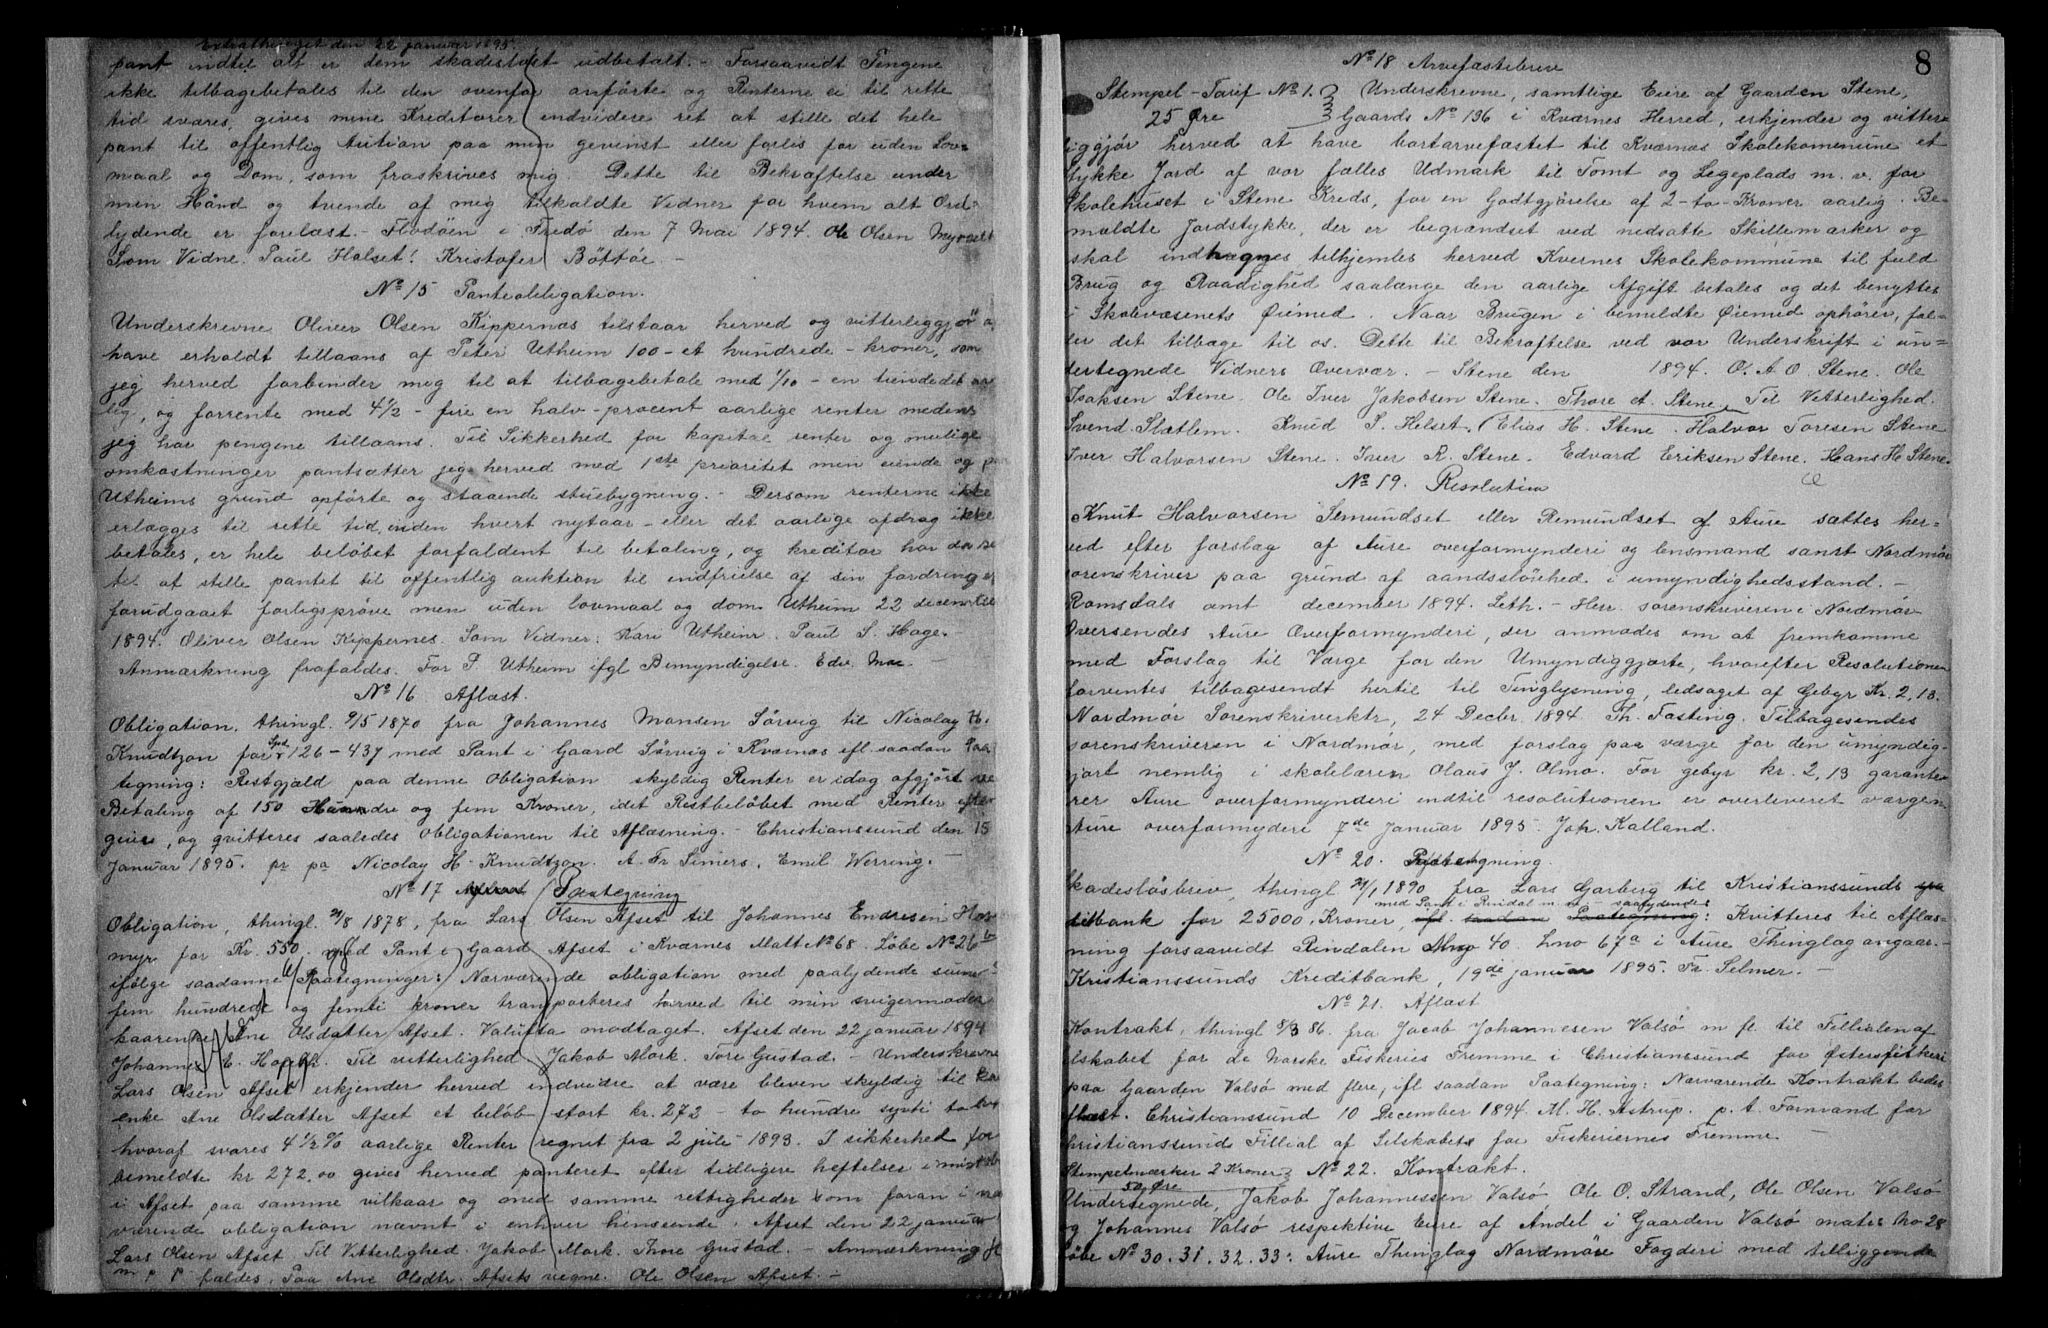 Extrathinget den 22 januar 1895.
pant indtil alt er dem skadesløst udbetalt. - Forsaavidt Pengene
ikke tilbagebetales til den ovenfor anførte og Renterne ei til rette
tid svares, gives mine Kreditorer endvidere ret at stille det hele
pant til offentlig Aution paa min gevinst eller forlis for uden Lov-
maal og Dom, som fraskrives mig. Dette til Bekræftelse under
min Hånd og tvende af mig tilkaldte Vidner for hvem alt Ord-
lydende er forelæst. - Flodöen i Fredö den 7 Mai 1894. Ole Olsen Myrvett
Som Vidne. Paul Halset! Kristofer Böttöe. -
No 15 Panteobligation.
Underskrevne Oliver Olsen Kippernæs tilstaar herved og vitterliggjør a
have erholdt tillaans af Peter Utheim 100 - et hundrede - kroner, som
jeg herved forbinder mig til at tilbagebetale med 1/10 - en tiendedel aar
lig, og forrente med 4 1/2 - fire en halv - procent aarlige renter medens
jeg har pengene tillaans. Til Sikkerhed for kapital renter og mulige
omkostninger pantsætter jeg herved med 1ste prioritet min eiende og paa
Utheims grund opførte og staaende stuebygning. - Dersom renterne ikke
erlægges til rette tid, inden hvert nytaar - eller det aarlige afdrag ikke
betales, er hele beløbet forfaldent til betaling, og kreditor har da ret
til at stille pantet til offentlig auktion til indfrielse af sin fordring ef
forudgaaet forligsprøve men uden lovmaal og dom. Utheim 22 decembr
1894. Oliver Olsen Kippernes. Som Vidner: Kari Utheim. Paul S. Hage. -
Anmærkning frafaldes. For P. Utheim ifgl Bemyndigelse. Edv. Moe. -
No 16 Aflæst.
Obligation, thingl. 9/5 1870 fra Johannes Monsen Sørvig til Nicolay H.
Knudtzon for Spd 126 - 437 med Pant i Gaard Sørvig i Kværnes efl saadan Paa
tegning: Restgjæld paa denne Obligation skyldig Renter er idag afgjört ve
Betaling af 150 Hundre og fem Kroner, idet Restbeløbet med Renter efter
gives, og qvitteres saaledes Obligationen til Aflæsning. - Christianssund den 15
Januar 1895. pr pa Nicolay H. Knudtzon. A. Fr. Simers. Emil Werring. -
No 17 Aflæst Paategning
Obligation, thingl 21/8 1878, fra Lars Olsen Afset til Johannes Endresen Hog
myr for Kr. 550. med Pant i Gaard Afset i Kværnes Matt No 68. Løbe No 26 b
ifölge saadanne Paategninger: Nærværende obligation med paalydende sum
fem hundrede og femti kroner transporteres herved til min svigermoder
kaarenke Ane Olsdatter Afset. Valuta modtaget. Afset den 22 januar 1894
Johannes E. Hogmyr. Til vitterlighed Jakob Mork. Tore Gustad. - Underskrevne
Lars Olsen Afset erkjender herved indvidre at være bleven skyldig til kaar
enke Ane Olsdatter Afset et beløb stort kr. 272 - to hundre sytti to kro
hvoraf svares 4 1/2 % aarlige Renter regnet fra 2 juli 1893. I sikkerhed for
bemeldte kr 272,00 gives herved panteret efter tidligere heftelser i mit
i Afset paa samme vilkaar og med samme rettigheder som foran i nær
værende obligation nævnt i enhver henseende. Afset den 22 januar
Lars Olsen Afset. Til Vitterlighed. Jakob Mork. Thore Gustad. - Anmærkning
faldes. Paa Ane Olsdtr. Afsets vegne. Ole Olsen Afset. -
8
No 18 Arvefæstebrev
Stempel - Tarif No 1. Underskrevne, samtlige Eiere af Gaarden Stene,
25 Øre Gaards No 136 i Kværnes Herred, erkjender og vitter-
iggjør herved at have bortarvefæstet til Kværnæs Skolekommune et
tykke Jord af vor fælles Udmark til Tomt og Legeplads m.v. for
Skolehuset i Stene Kreds, for en Godtgjörelse af 2 - to - Kroner aarlig. Be-
mældte Jordstykke, der er begrændset ved nedsatte Skillemærker og
skal indhegnes tilhjemles herved Kvernes Skolekommune til fuld
Brug og Raadighed saalænge den aarlige Afgift betales og det benyttes
i Skolevæsenets Øiemed. Naar Brugen i bemeldte Øiemed ophører, fal-
der det tilbage til os. Dette til Bekræftelse ved vor Underskrift i un-
dertegnede Vidners Overvær. - Stene den 1894. O. A. O. Stene. Ole
Isaksen Stene. Ole Iver Jakobsen Stene. Thore A. Stene. Til Vitterlighed.
Svend Slatlem. Knud S. Helset. Elias H. Stene. Halvor Toresen Stene
Iver Halvorsen Stene. Iver R. Stene. Edvard Eriksen Stene. Hans H. Stene.
No 19. Resolution
Knut Halvorsen Semundset eller Remundset af Aure sættes her-
ved efter forslag af Aure overformynderi og lensmand samt Nordmør
sorenskriver paa grund af aandssløvhed i umyndighedsstand. -
Romsdals amt december 1894. Leth. - Herr sorenskriveren i Nordmør
Oversendes Aure Overformynderi, der anmodes om at fremkomme
med Forslag til Værge for den Umyndiggjorte, hvorefter Resolutionen
forventes tilbagesendt hertil til Tinglysning, ledsaget af Gebyr Kr. 2,13.
Nordmør Sorenskriverktr, 24 Decbr. 1894. Th. Fasting. Tilbagesendes
sorenskriveren i Nordmør, med forslag paa værge for den umyndig-
gjort nemlig i skolelæren Olaus J. Olmo. For gebyr kr. 2,13 garante-
rer Aure overformynderi indtil resolutionen er overleveret værgen
Aure overformyderi 7de januar 1895. Joh. Kalland.
No 20. Paategning.
Skadesløsbrev, thingl 21/1 1890 fra Lars Garberg til Kristianssunds
med Pant i Rindal m.v. - saalydende
ditbank for 25000. Kroner, efl. saadan Paategning: Kvitteres til Aflæs-
ning forsaavidt Rindalen Mno 40. Lno 67a i Aure Thinglag angaar. -
Kristianssunds Kreditbank, 19de januar 1895. Fr. Selmer. -
No 21. Aflæst
Kontrakt, thingl 8/3 86. fra Jacob Johannesen Valsö m fl. til Fillialen af
elskabet for de norske Fiskeries Fremme i Christianssund for østersfiskeri
paa Gaarden Valsö med flere, ifl saadan Paategning: Nærværende Kontrakt bedes
aflæst. Christianssund 10 December 1894. M. H. Astrup. p.t. Formand for
Christianssunds Fillial af Selskabets for Fiskeriernes Fremme. -
Stempelmærker 2 Kroner No 22. Kontrakt.
50 Øre
Undertegnede, Jakob Johannessen Valsö Ole O. Strand, Ole Olsen Valsö
og Johannes Valsö respektive Eiere af Andel i Gaarden Valsö mates No 28
Löbe No 30. 31. 32. 33: Aure Thinglag Nordmöre Fogderi med tilliggende